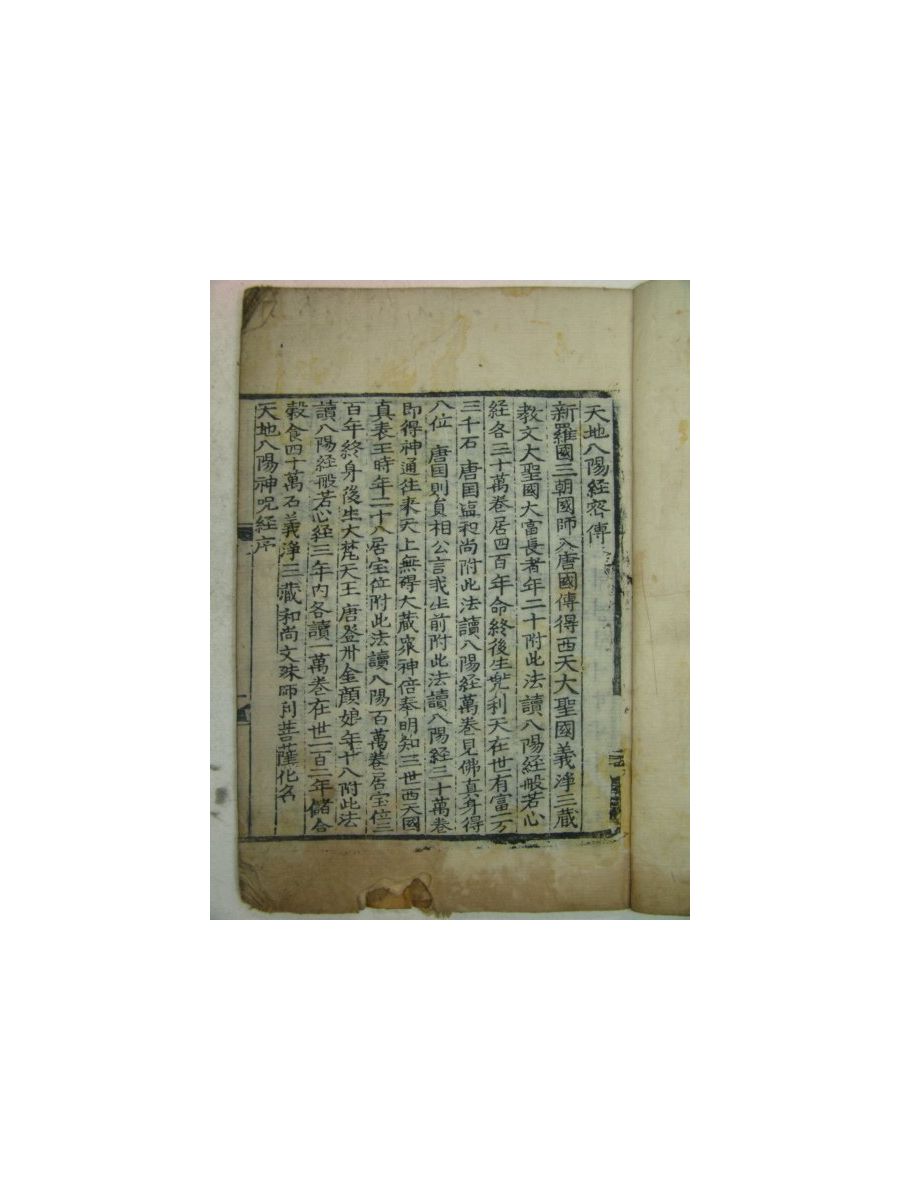 天地八陽経宻傳
新羅國三朝國師入唐國傳得西天大聖國義淨三蔵
教文大聖國大富長者年二十附此法讀八陽經般若心
経各三十萬巻居四百年命終後生兜利天在世有富一万
三千石 唐国和尚附此法讀八陽経萬巻見佛真身得
八位 唐国則貞相公言我生前附此法讀八陽経三十萬巻
即得神通往来天上無碍大蔵衆神倍奉明知三世西天國
真表王時年二十八居宝位附此法讀八陽百萬巻居宝位三
百年終身後生大梵天王 唐登州金顔娘年十八附此法
讀八陽経般若心経三年内各讀一萬巻在世一百二年儲合
穀食四十萬石義淨三蔵和尚文殊師利菩薩化名
天地八陽神呪経序